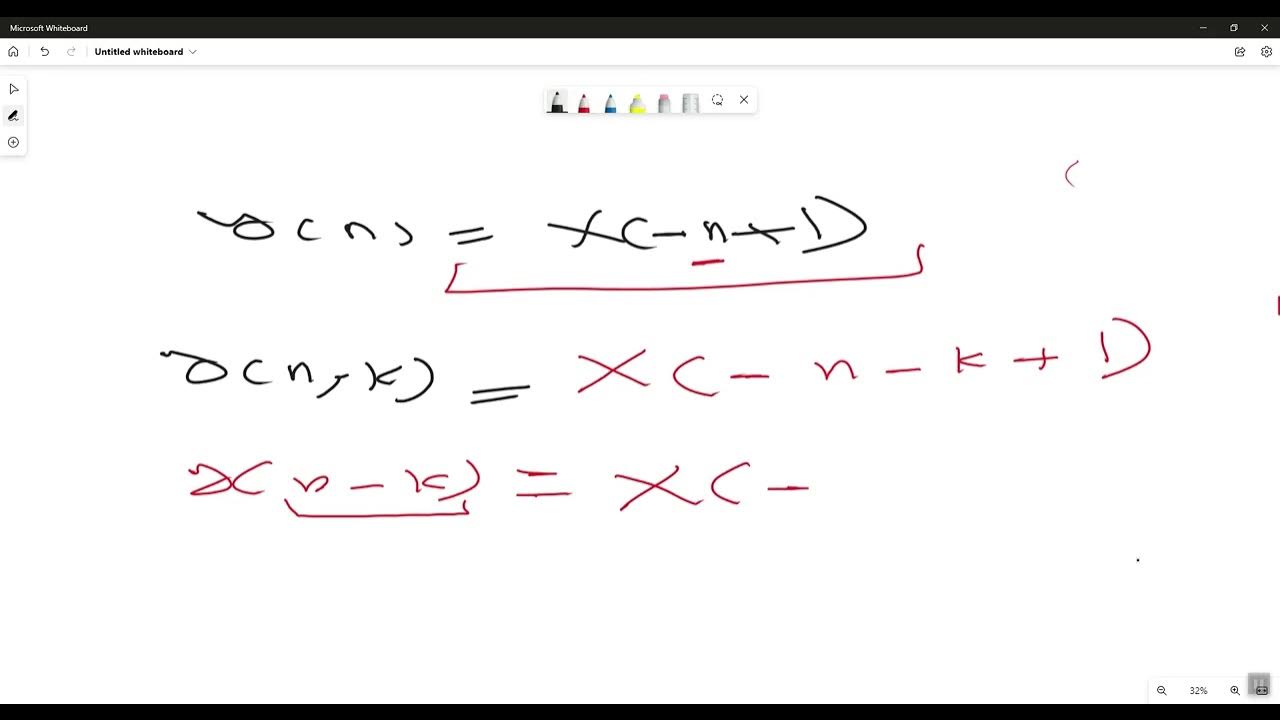 Microsoft Whiteboard
Untitled whiteboard
(
y(n) = x(-n+1)
y(n,k) = x(-n-k+1)
y(n-k) = x(-
32%